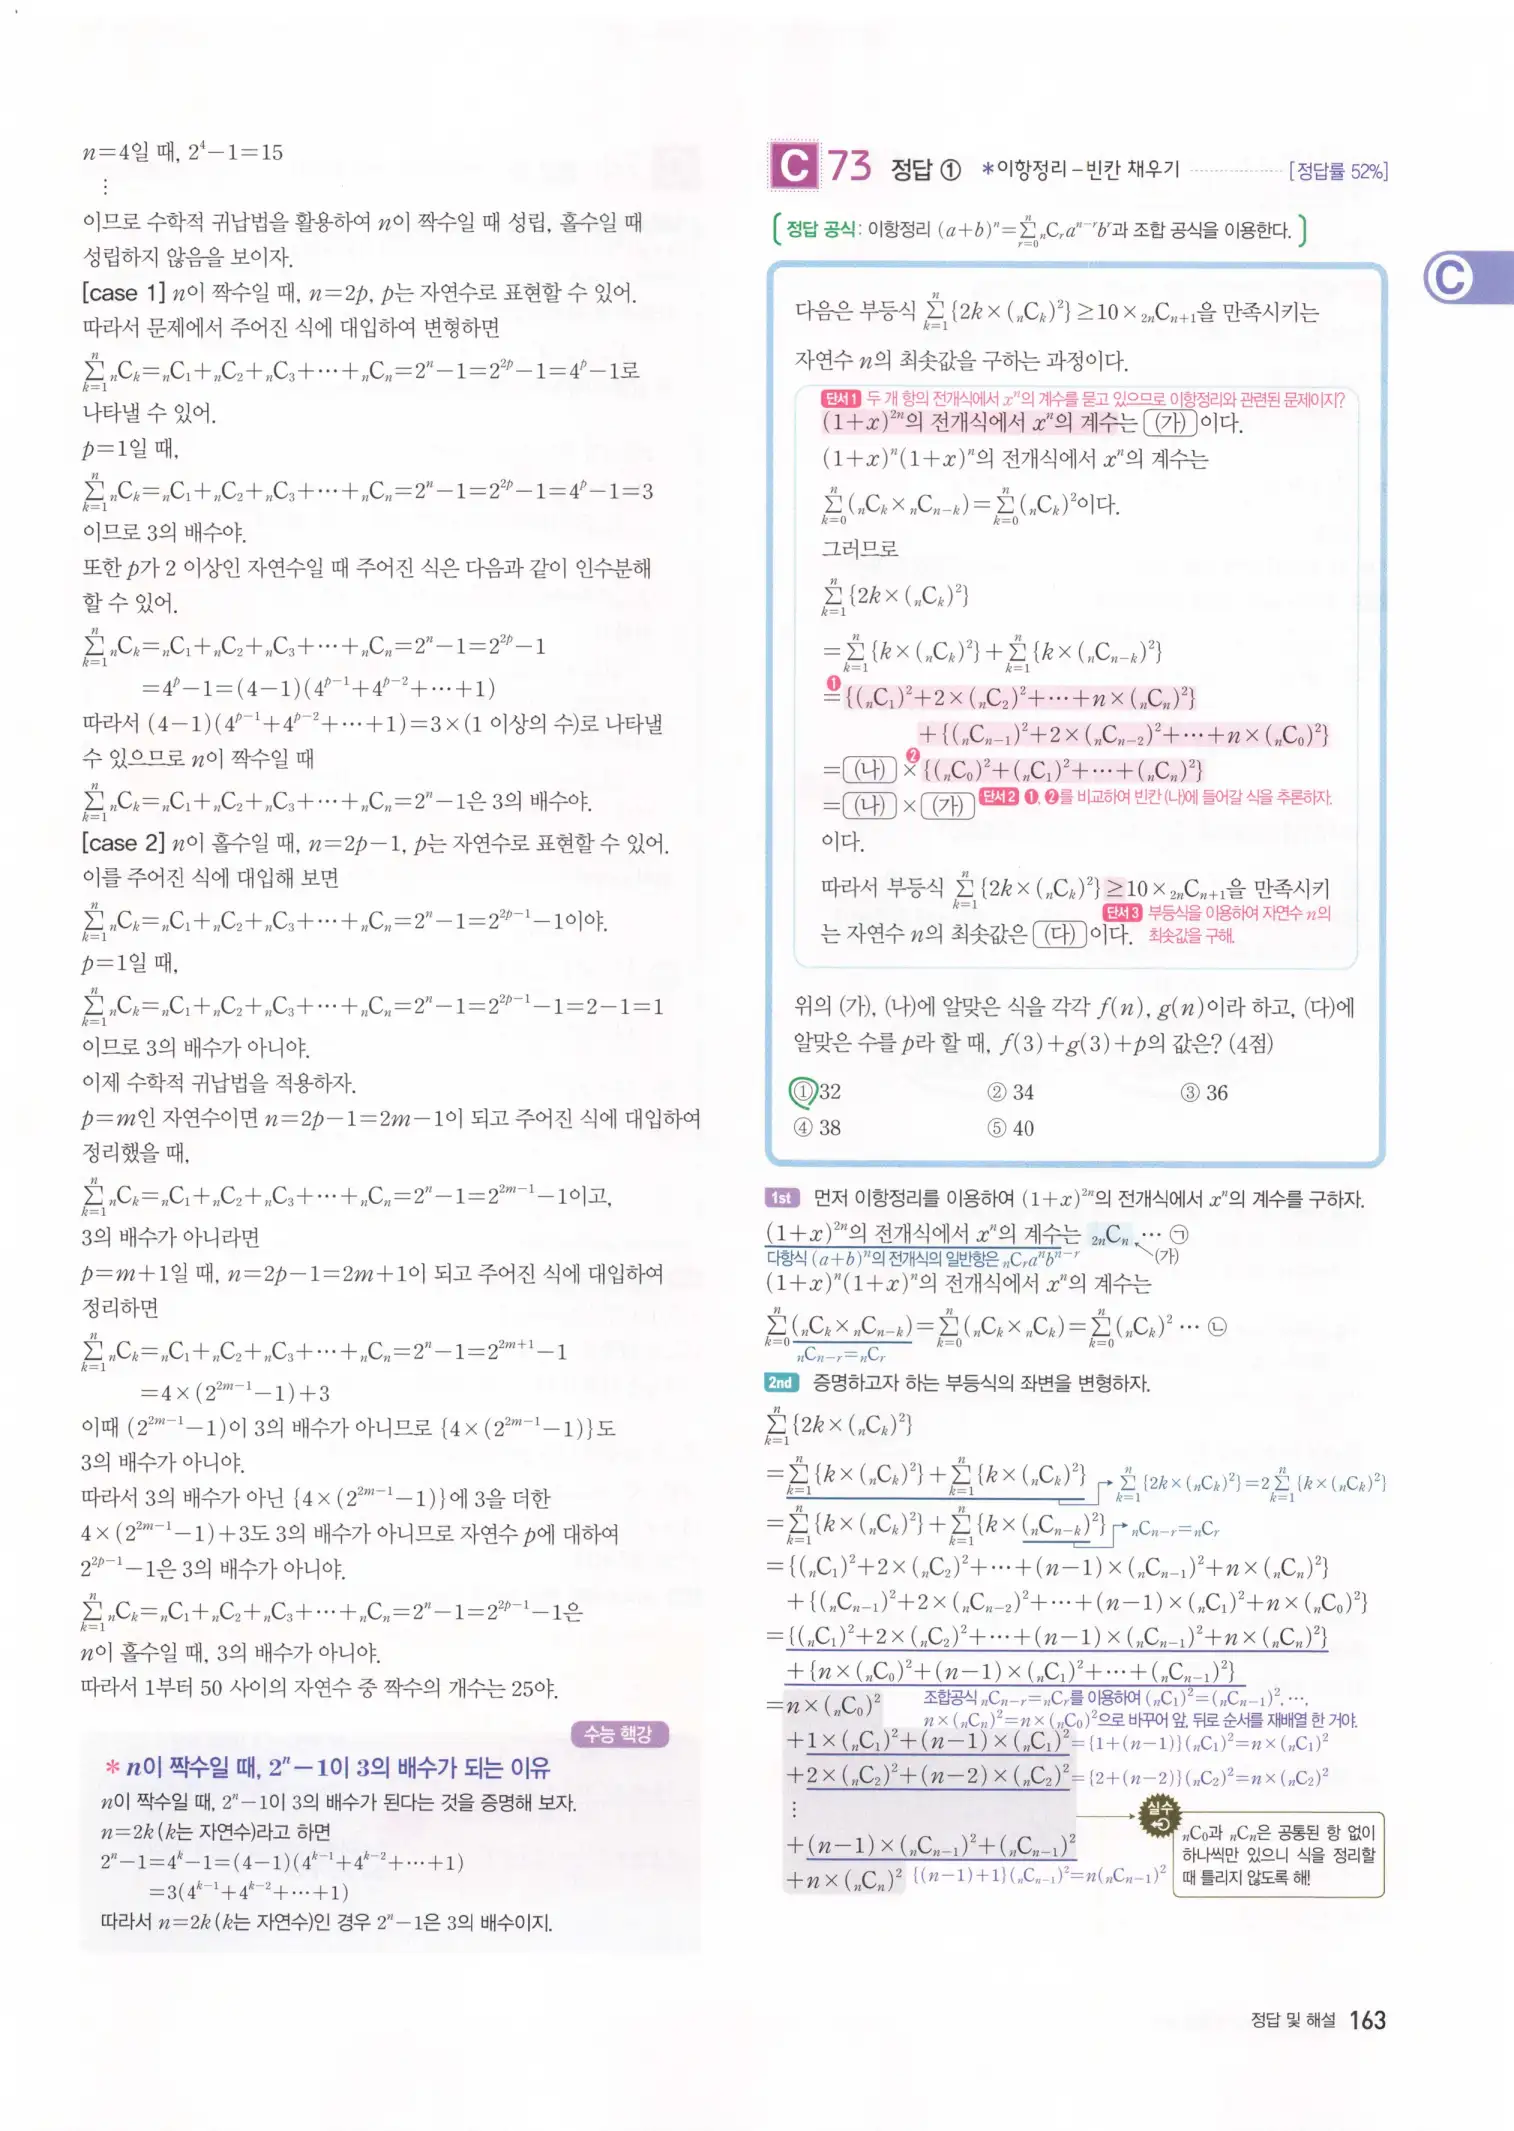 n=4일 때, 2⁴−1=15
⋮
이므로 수학적 귀납법을 활용하여 n이 짝수일 때 성립, 홀수일 때
성립하지 않음을 보이자.
[case 1] n이 짝수일 때, n=2p, p는 자연수로 표현할 수 있어.
따라서 문제에서 주어진 식에 대입하여 변형하면
∑_{k=1}^{n} ₙCₖ=ₙC₁+ₙC₂+ₙC₃+⋯+ₙCₙ=2^n−1=2^{2p}−1=4^p−1로
나타낼 수 있어.
p=1일 때,
∑_{k=1}^{n} ₙCₖ=ₙC₁+ₙC₂+ₙC₃+⋯+ₙCₙ=2^n−1=2^{2p}−1=4^p−1=3
이므로 3의 배수야.
또한 p가 2 이상인 자연수일 때 주어진 식은 다음과 같이 인수분해
할 수 있어.
∑_{k=1}^{n} ₙCₖ=ₙC₁+ₙC₂+ₙC₃+⋯+ₙCₙ=2^n−1=2^{2p}−1
=4^p−1=(4−1)(4^{p−1}+4^{p−2}+⋯+1)
따라서 (4−1)(4^{p−1}+4^{p−2}+⋯+1)=3×(1 이상의 수)로 나타낼
수 있으므로 n이 짝수일 때
∑_{k=1}^{n} ₙCₖ=ₙC₁+ₙC₂+ₙC₃+⋯+ₙCₙ=2^n−1은 3의 배수야.
[case 2] n이 홀수일 때, n=2p−1, p는 자연수로 표현할 수 있어.
이를 주어진 식에 대입해 보면
∑_{k=1}^{n} ₙCₖ=ₙC₁+ₙC₂+ₙC₃+⋯+ₙCₙ=2^n−1=2^{2p−1}−1이야.
p=1일 때,
∑_{k=1}^{n} ₙCₖ=ₙC₁+ₙC₂+ₙC₃+⋯+ₙCₙ=2^n−1=2^{2p−1}−1=2−1=1
이므로 3의 배수가 아니야.
이제 수학적 귀납법을 적용하자.
p=m인 자연수이면 n=2p−1=2m−1이 되고 주어진 식에 대입하여
정리했을 때,
∑_{k=1}^{n} ₙCₖ=ₙC₁+ₙC₂+ₙC₃+⋯+ₙCₙ=2^n−1=2^{2m−1}−1이고,
3의 배수가 아니라면
p=m+1일 때, n=2p−1=2m+1이 되고 주어진 식에 대입하여
정리하면
∑_{k=1}^{n} ₙCₖ=ₙC₁+ₙC₂+ₙC₃+⋯+ₙCₙ=2^n−1=2^{2m+1}−1
=4×(2^{2m−1}−1)+3
이때 (2^{2m−1}−1)이 3의 배수가 아니므로 {4×(2^{2m−1}−1)}도
3의 배수가 아니야.
따라서 3의 배수가 아닌 {4×(2^{2m−1}−1)}에 3을 더한
4×(2^{2m−1}−1)+3도 3의 배수가 아니므로 자연수 p에 대하여
2^{2p−1}−1은 3의 배수가 아니야.
∑_{k=1}^{n} ₙCₖ=ₙC₁+ₙC₂+ₙC₃+⋯+ₙCₙ=2^n−1=2^{2p−1}−1은
n이 홀수일 때, 3의 배수가 아니야.
따라서 1부터 50 사이의 자연수 중 짝수의 개수는 25야.
수능 핵강
* n이 짝수일 때, 2^n−1이 3의 배수가 되는 이유
n이 짝수일 때, 2^n−1이 3의 배수가 된다는 것을 증명해 보자.
n=2k (k는 자연수)라고 하면
2^n−1=4^k−1=(4−1)(4^{k−1}+4^{k−2}+⋯+1)
=3(4^{k−1}+4^{k−2}+⋯+1)
따라서 n=2k (k는 자연수)인 경우 2^n−1은 3의 배수이지.
C 73 정답 ① *이항정리−빈칸 채우기 [정답률 52%]
정답 공식: 이항정리 (a+b)^n=∑_{r=0}^{n} ₙCᵣa^{n−r}b^r과 조합 공식을 이용한다.
C
다음은 부등식 ∑_{k=1}^{n} {2k×(ₙCₖ)²}≥10×₂ₙCₙ₊₁을 만족시키는
자연수 n의 최솟값을 구하는 과정이다.
단서1 두 개 항의 전개식에서 x^n의 계수를 묻고 있으므로 이항정리와 관련된 문제이지?
(1+x)^{2n}의 전개식에서 x^n의 계수는 (가)이다.
(1+x)^n(1+x)^n의 전개식에서 x^n의 계수는
∑_{k=0}^{n} (ₙCₖ×ₙCₙ₋ₖ)=∑_{k=0}^{n} (ₙCₖ)²이다.
그러므로
∑_{k=1}^{n} {2k×(ₙCₖ)²}
=∑_{k=1}^{n} {k×(ₙCₖ)²}+∑_{k=1}^{n} {k×(ₙCₙ₋ₖ)²}
❶
={(ₙC₁)²+2×(ₙC₂)²+⋯+n×(ₙCₙ)²}
+{(ₙCₙ₋₁)²+2×(ₙCₙ₋₂)²+⋯+n×(ₙC₀)²}
❷
=(나)×{(ₙC₀)²+(ₙC₁)²+⋯+(ₙCₙ)²}
=(나)×(가) 단서2 ❶, ❷를 비교하여 빈칸 (나)에 들어갈 식을 추론하자.
이다.
따라서 부등식 ∑_{k=1}^{n} {2k×(ₙCₖ)²}≥10×₂ₙCₙ₊₁을 만족시키
는 자연수 n의 최솟값은 (다)이다.
단서3 부등식을 이용하여 자연수 n의
최솟값을 구해.
위의 (가), (나)에 알맞은 식을 각각 f(n), g(n)이라 하고, (다)에
알맞은 수를 p라 할 때, f(3)+g(3)+p의 값은? (4점)
① 32 ② 34 ③ 36
④ 38 ⑤ 40
1st 먼저 이항정리를 이용하여 (1+x)^{2n}의 전개식에서 x^n의 계수를 구하자.
(1+x)^{2n}의 전개식에서 x^n의 계수는 ₂ₙCₙ ⋯ ㉠
다항식 (a+b)^n의 전개식의 일반항은 ₙCᵣa^r b^{n−r} (가)
(1+x)^n(1+x)^n의 전개식에서 x^n의 계수는
∑_{k=0}^{n} (ₙCₖ×ₙCₙ₋ₖ)=∑_{k=0}^{n} (ₙCₖ×ₙCₖ)=∑_{k=0}^{n} (ₙCₖ)² ⋯ ㉡
ₙCₙ₋ᵣ=ₙCᵣ
2nd 증명하고자 하는 부등식의 좌변을 변형하자.
∑_{k=1}^{n} {2k×(ₙCₖ)²}
=∑_{k=1}^{n} {k×(ₙCₖ)²}+∑_{k=1}^{n} {k×(ₙCₖ)²} ∑_{k=1}^{n} {2k×(ₙCₖ)²}=2∑_{k=1}^{n} {k×(ₙCₖ)²}
=∑_{k=1}^{n} {k×(ₙCₖ)²}+∑_{k=1}^{n} {k×(ₙCₙ₋ₖ)²} ₙCₙ₋ᵣ=ₙCᵣ
={(ₙC₁)²+2×(ₙC₂)²+⋯+(n−1)×(ₙCₙ₋₁)²+n×(ₙCₙ)²}
+{(ₙCₙ₋₁)²+2×(ₙCₙ₋₂)²+⋯+(n−1)×(ₙC₁)²+n×(ₙC₀)²}
={(ₙC₁)²+2×(ₙC₂)²+⋯+(n−1)×(ₙCₙ₋₁)²+n×(ₙCₙ)²}
+{n×(ₙC₀)²+(n−1)×(ₙC₁)²+⋯+(ₙCₙ₋₁)²}
=n×(ₙC₀)² 조합공식 ₙCₙ₋ᵣ=ₙCᵣ를 이용하여 (ₙC₁)²=(ₙCₙ₋₁)², ⋯,
n×(ₙCₙ)²=n×(ₙC₀)²으로 바꾸어 앞, 뒤로 순서를 재배열 한 거야.
+1×(ₙC₁)²+(n−1)×(ₙC₁)²={1+(n−1)}(ₙC₁)²=n×(ₙC₁)²
+2×(ₙC₂)²+(n−2)×(ₙC₂)²={2+(n−2)}(ₙC₂)²=n×(ₙC₂)²
⋮
+(n−1)×(ₙCₙ₋₁)²+(ₙCₙ₋₁)²
+n×(ₙCₙ)² {(n−1)+1}(ₙCₙ₋₁)²=n(ₙCₙ₋₁)²
실수
ₙC₀과 ₙCₙ은 공통된 항 없이
하나씩만 있으니 식을 정리할
때 틀리지 않도록 해!
정답 및 해설 163